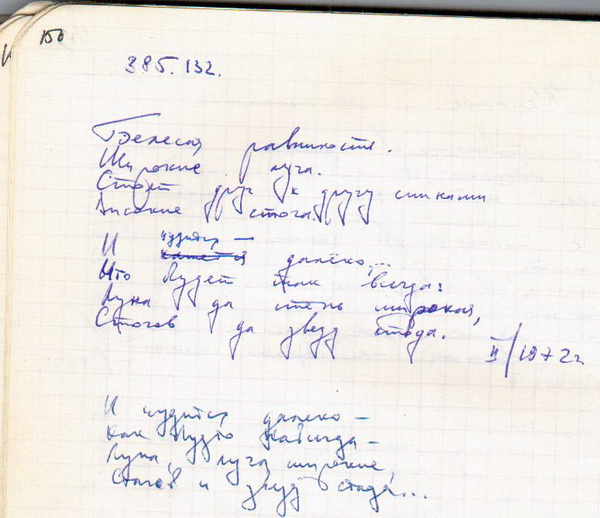 150
385.132.
Белесая равнинность.
Широкие луга.
Стоят друг к другу спинами
Высокие стога.
И чудится —
кажется далёко,...
Что будет так всегда:
Луна да степь широкая,
Стогов да звёзд стада.
II/1972 г
И чудится далеко —
Как будто навсегда —
Луна, луга широкие,
Стогов и звёзд стада...